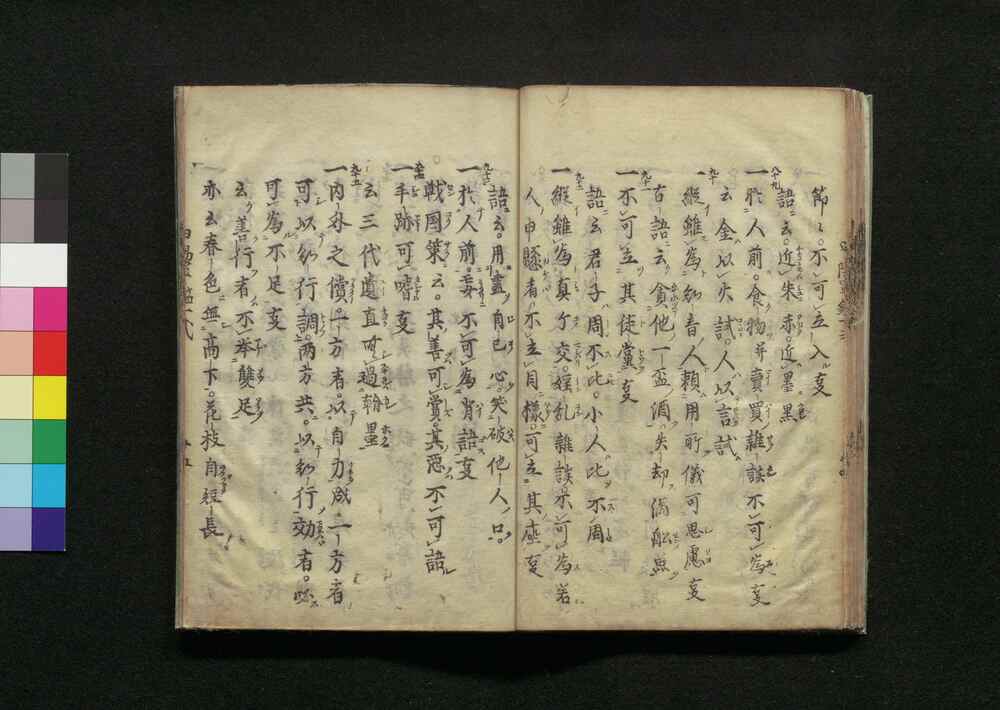 節〻。不可立入事
語云。近朱赤。近墨黒
八十九
一於人前。食物并賣買雑談不可為事
云金以火試。人以言試
九十
一縦雖為知音人頼用所儀可思慮事
古語云貪他一盃酒失却満船魚
九十一
一不可立其徒黨事
語云君子周不比。小人比不周
九十二
一縦雖為真知交。娯乱雑談不可為。若
人申懸者不立目様。可立其座事
語云。用盡自己心。笑破他人口。
九十三
一於人前。妄不可為背語事
戦國策云。其善可賞。其惡不可語
九十四
一手跡可嗜事
云三代遺直可過翰墨
九十五
一内外之償二一方者。以自力成一方者
可以知行調。両方共。以知行効者。必
可為不足事
云善行者不挙雙足
亦云春色無高下。花枝自短長